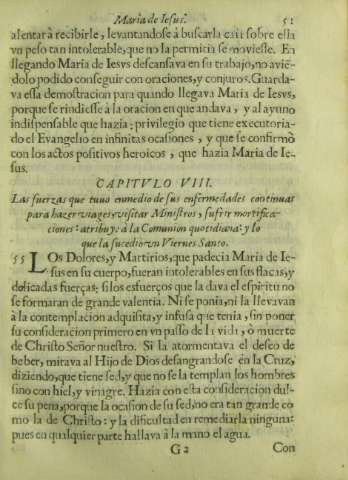 Maria de Iesus. 51
alentàra recibirle, levantandose à buscarla cai sobre ella
vn peso tan intolerable, que no la permitia se moviesse. En
llegando Maria de Iesvs descansava en su trabajo, no avié-
dolo podido conseguir con oraciones, y conjuros. Guarda-
va essa demostracion para quando llegava Maria de Iesvs,
porque se rindiesse à la oracion en que andava, y al ayuno
indispensable que hazia; privilegio que tiene executoria-
do el Evangelio en infinitas ocasiones, y que se confirmò
con los actos positivos heroicos, que hazia Maria de Ie-
sus.
CAPITVLO VIII.
Las fuerzas que tuuo enmedio de sus enfermedades continuas
para hazer viages, visitar Ministros, sufrir mortifica-
ciones: atribuye à la Comunion quotidiana: y lo
que la sucediò vn Viernes Santo.
55 LOs Dolores, y Martirios, que padecia Maria de Ie-
sus en su cuerpo, fueran intolerables en sus flacas, y
delicadas fuerças, si los esfuerços que la dava el espiritu no
se formaran de grande valentia. Ni se ponia, ni la llevavan
à la contemplacion adquisita, y infusa que tenia, sin poner
su consideracion primero en vn passo de la vida, ò muerte
de Christo Señor nuestro. Si la atormentava el deseo de
beber, mirava al Hijo de Dios desangrandose en la Cruz,
diziendo, que tiene sed, y que no se la templan los hombres
sino con hiel, y vinagre. Hazia con esta consideracion dul-
ce su pena, porque la ocasion de su sed, no era tan grande co
mo la de Christo: y la dificultad en remediarla ninguna:
pues en qualquier parte hallava à la mano el agua.
G 2 Con